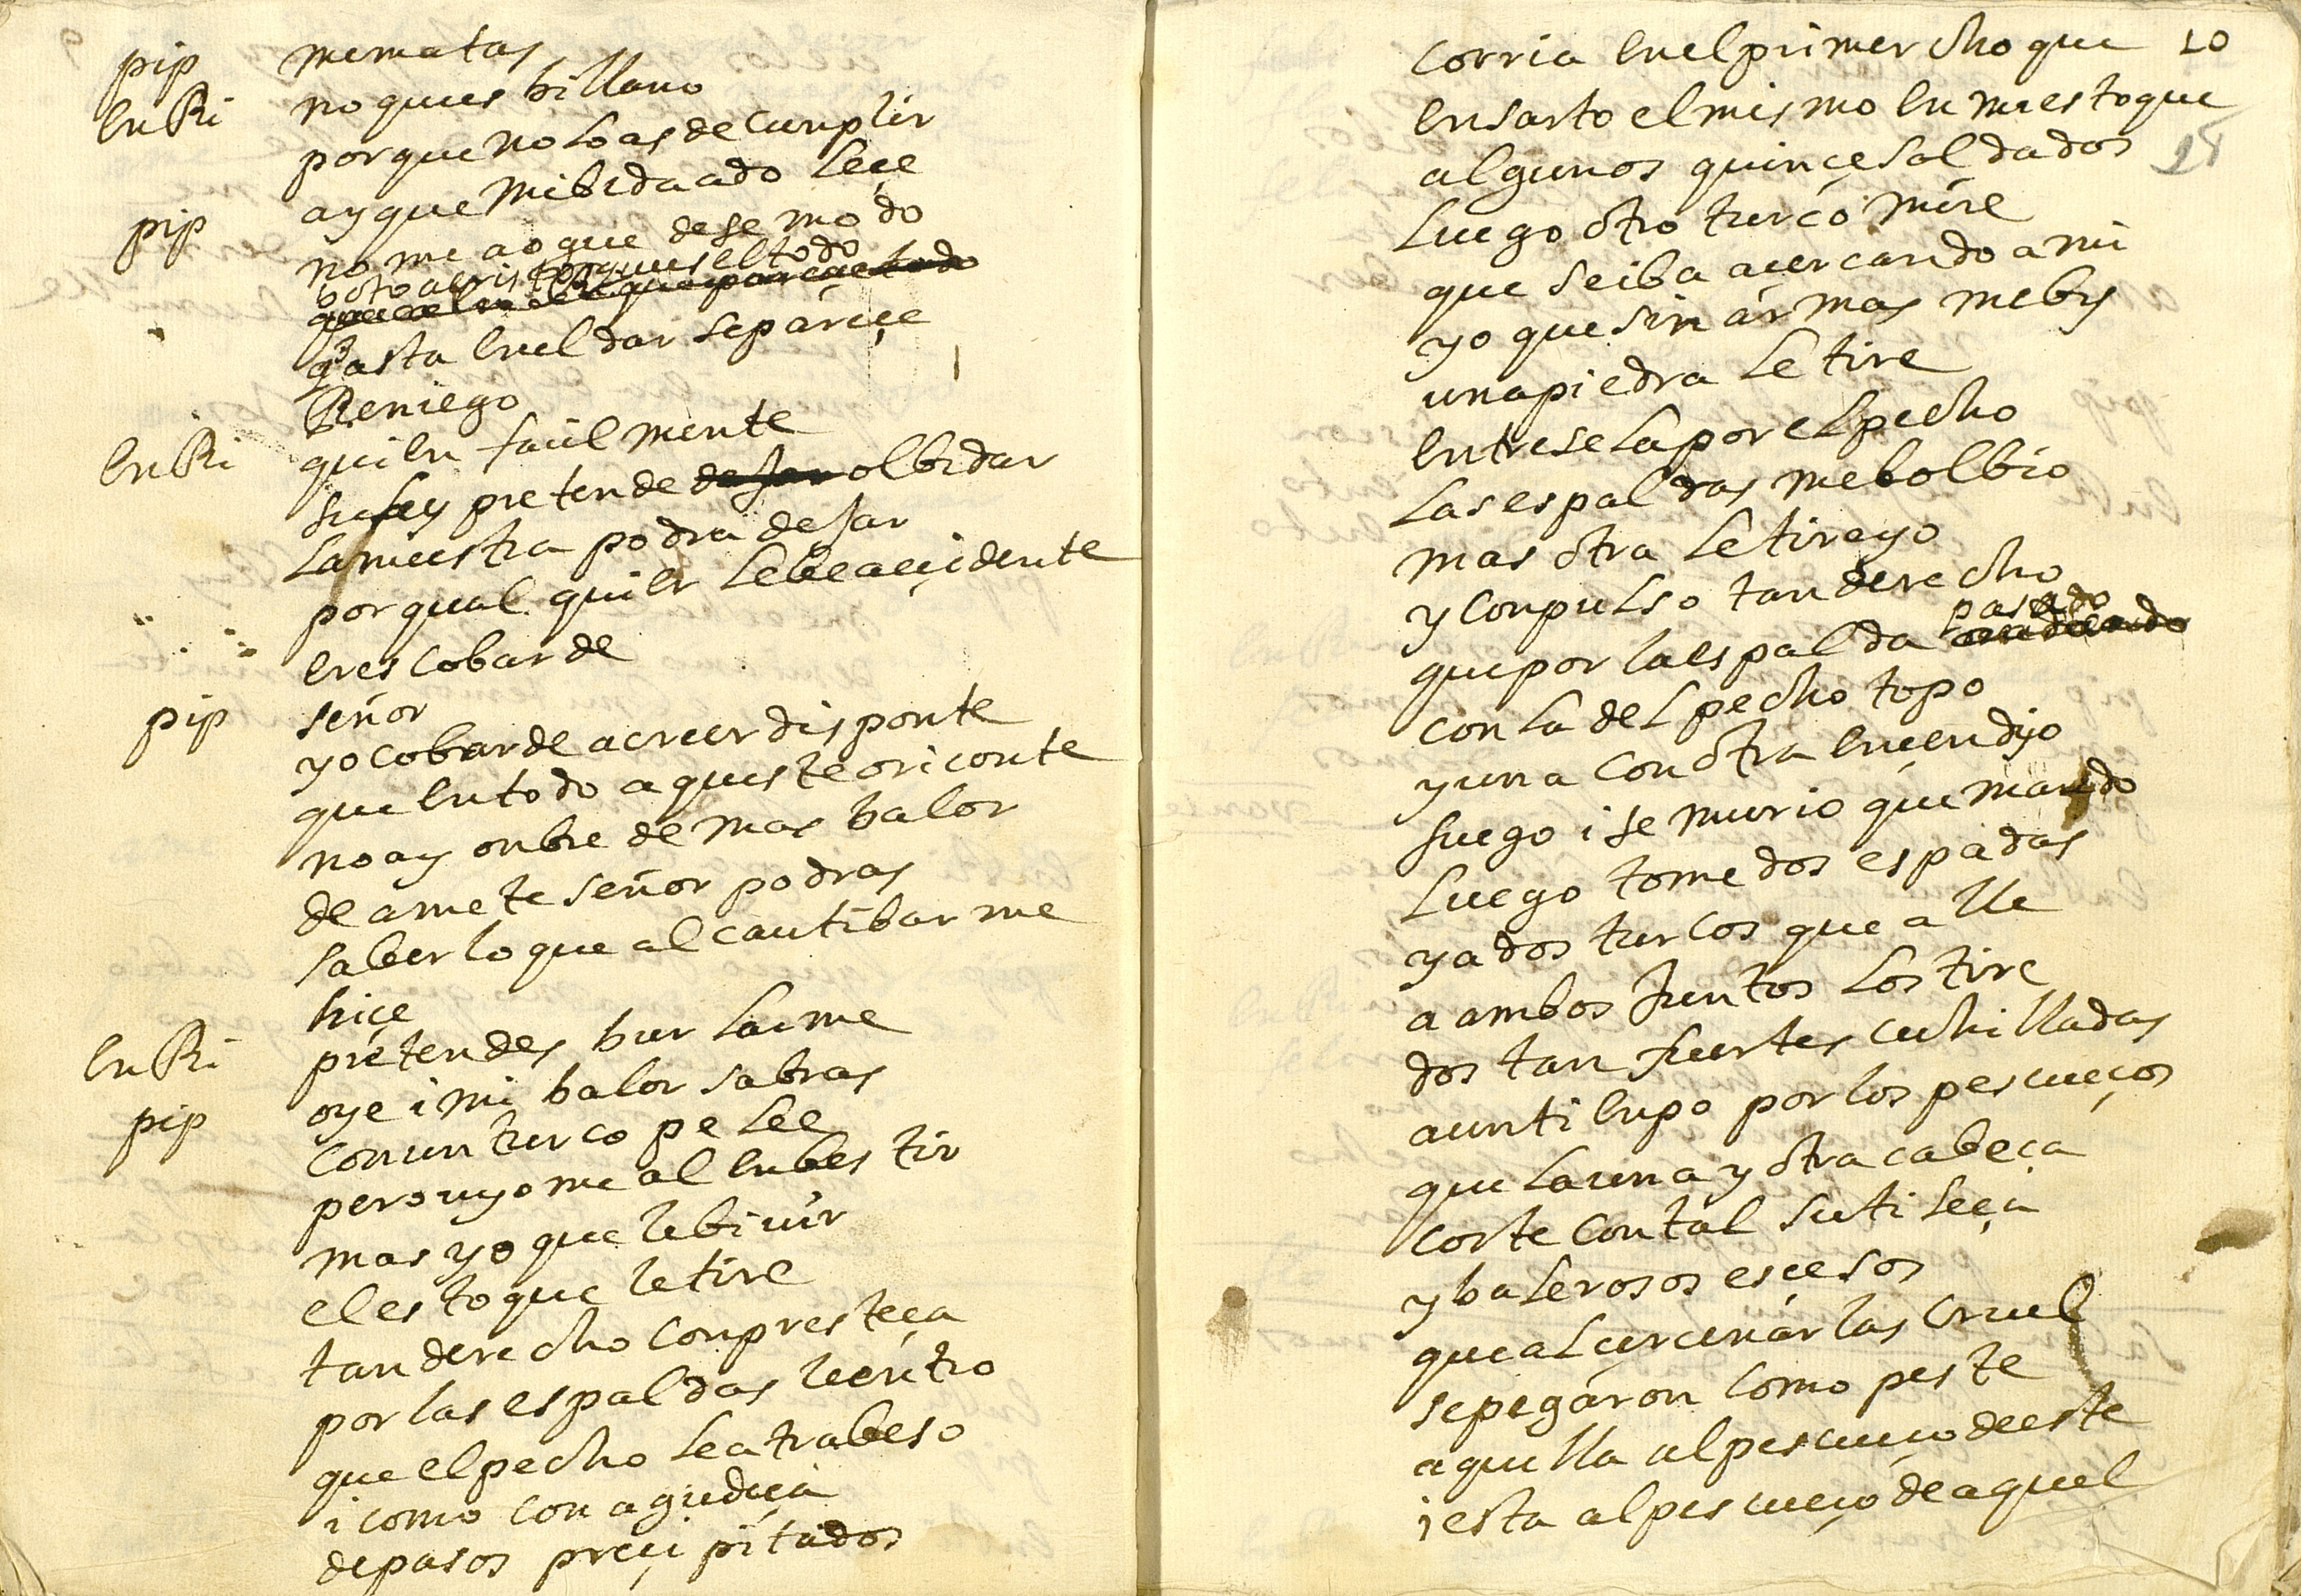 pip mematas
enRi no ques billano
porque no lo as de cunplir
ay que mi bida adoleçe
pip no me aogue dese modo
boto a cristo ques el todo
gasta en el dar se pareçe
Reniego
enRi quien façilmente
su ley pretende dejar olbidar
la nuestra podra dejar
por qual quier lebe acçidente
eres cobarde
pip señor
yo cobarde a creer disponte
que en todo aqueste oriconte
no ay onbre de mas balor
de amete señor podras
saber lo que al cautibarme
hiçe
enRi pretendes burlarme
pip oye i mi balor sabras
con un turco pelee
pero uyome al enbestir
mas yo que le bi uir
el estoque le tire
tan derecho con presteça
por las espaldas le entro
que el pecho le atrabeso
i como con agudeça
de pasos preçipitados
corria en el primer choque 10
ensarto el mismo en mi estoque
algunos quinçe soldados
luego otro turco mire
que se iba acercando a mi
yo que sin armas me bi
una piedra le tire
entresela por el pecho
las espaldas me bolbio
mas otra le tire yo
y con pulso tan derecho
que por la espalda pasado
con la del pecho topo
y una con otra ençendio
fuego i se murio quemando
luego tome dos espadas
y a dos turcos que alle
a ambos juntos los tire
dos tan fuertes cuchilladas
a un tienpo por los pescueços
que la una y otra cabeça
corte con tal sutileça
y balerosos esçesos
que al çerçenarlas cruel
se pegaron como peste
aquella al pescueço de este
i esta al pescueço de aquel